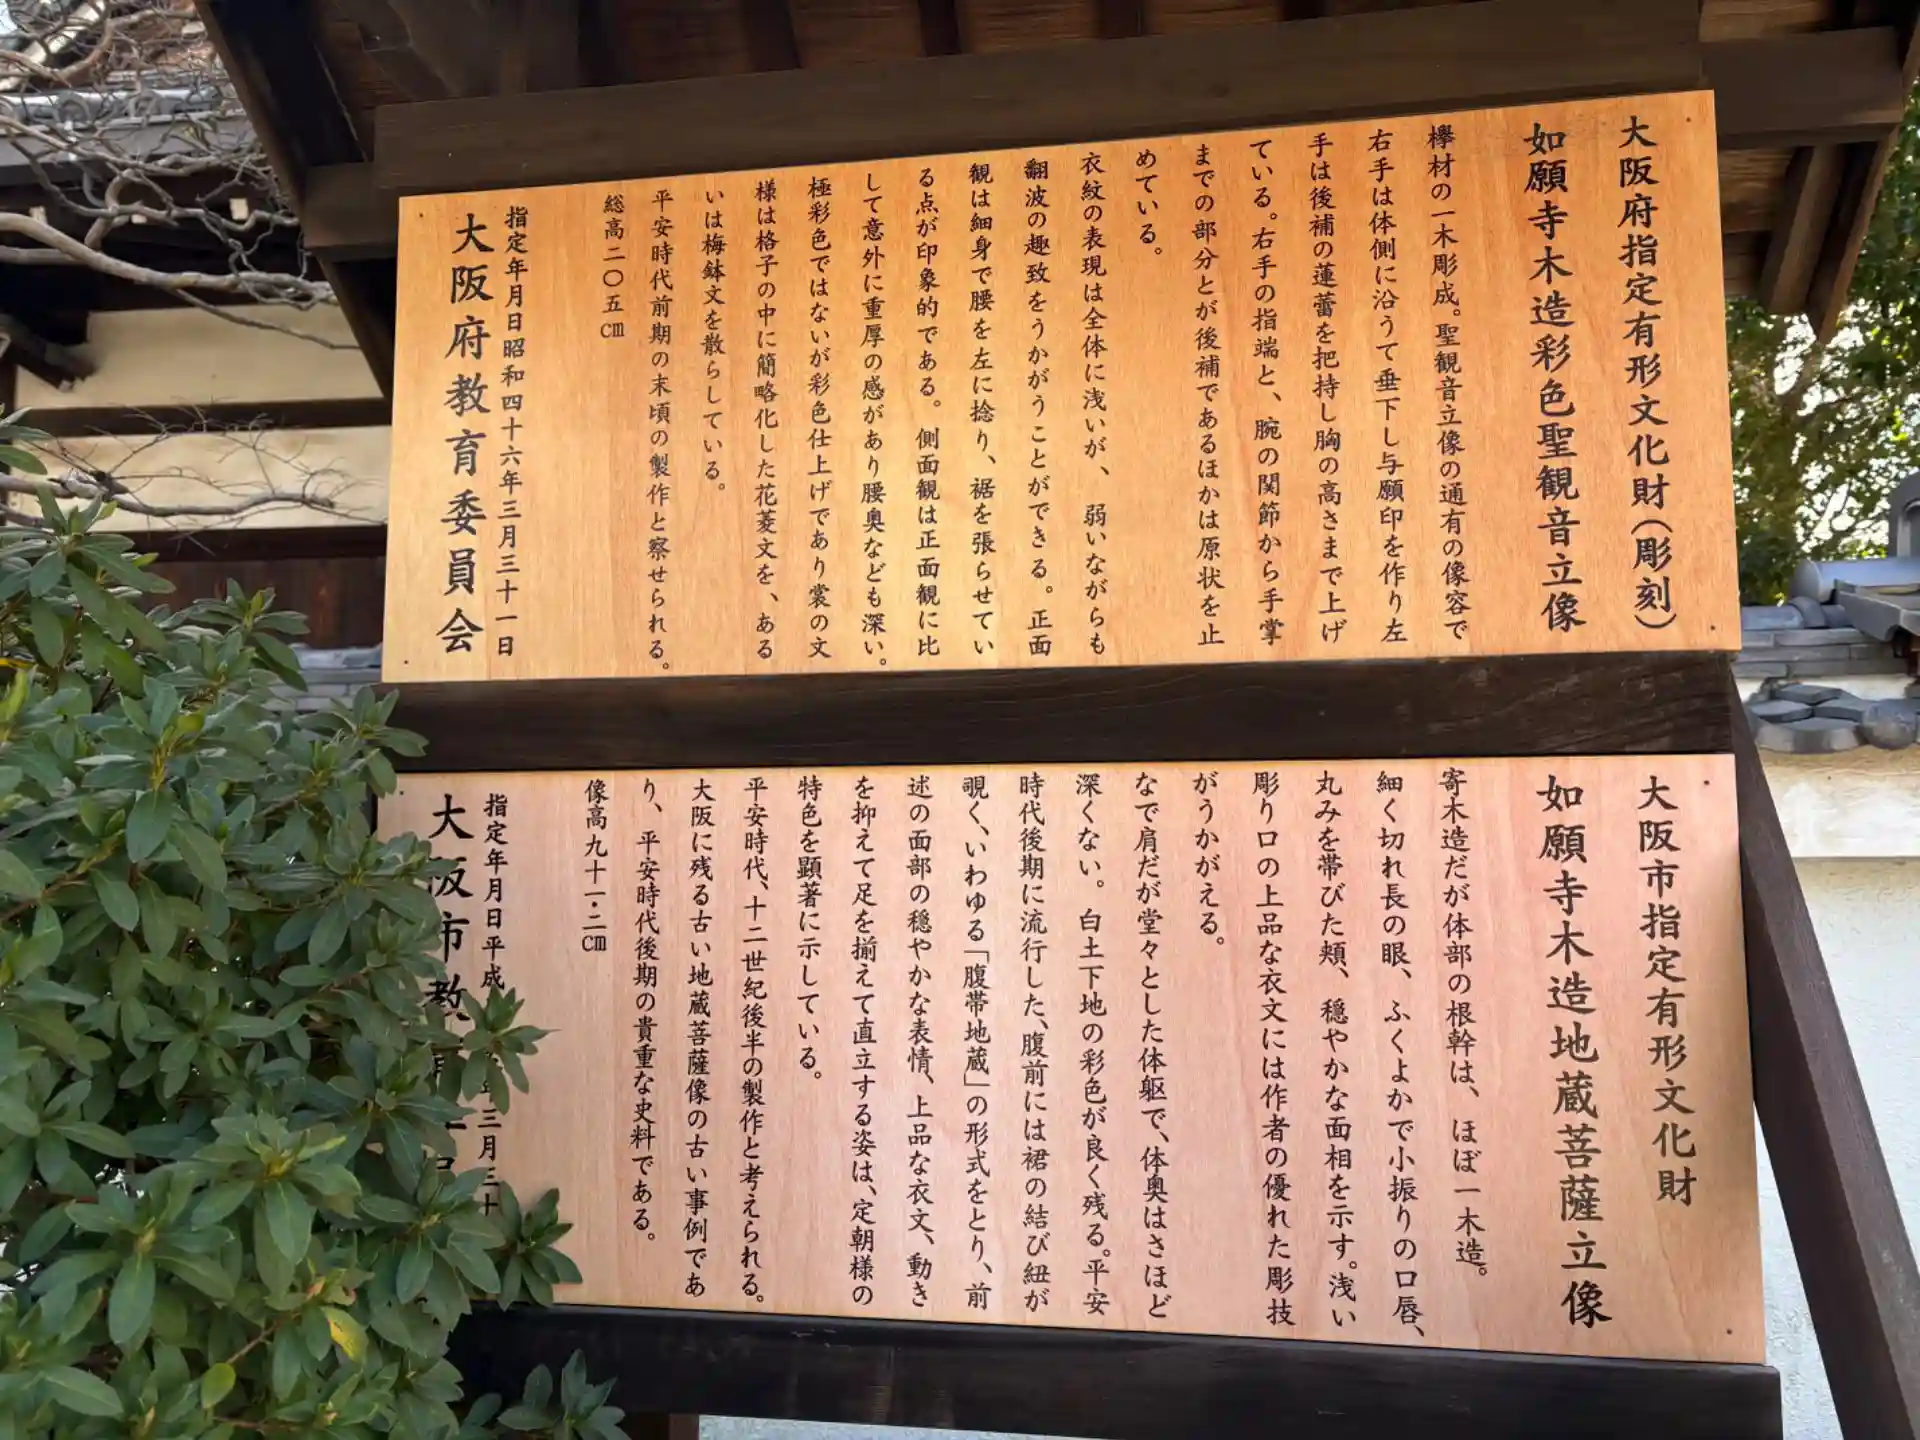 大阪府指定有形文化財(彫刻)
如願寺木造彩色聖観音立像
欅材の一木彫成。聖観音立像の通有の像容で
右手は体側に沿うて垂下し与願印を作り左
手は後補の蓮蕾を把持し胸の高さまで上げ
ている。右手の指端と、腕の関節から手掌
までの部分とが後補であるほかは原状を止
めている。
衣紋の表現は全体に浅いが、弱いながらも
翻波の趣致をうかがうことができる。正面
観は細身で腰を左に捻り、裾を張らせてい
る点が印象的である。側面観は正面観に比
して意外に重厚の感があり腰奥なども深い。
極彩色ではないが彩色仕上げであり裳の文
様は格子の中に簡略化した花菱文を、ある
いは梅鉢文を散らしている。
平安時代前期の末頃の製作と察せられる。
総高二〇五㎝
指定年月日昭和四十六年三月三十一日
大阪府教育委員会
大阪市指定有形文化財
如願寺木造地蔵菩薩立像
寄木造だが体部の根幹は、ほぼ一木造。
細く切れ長の眼、ふくよかで小振りの口唇、
丸みを帯びた頬、穏やかな面相を示す。浅い
彫り口の上品な衣文には作者の優れた彫技
がうかがえる。
なで肩だが堂々とした体躯で、体奥はさほど
深くない。白土下地の彩色が良く残る。平安
時代後期に流行した、腹前には裙の結び紐が
覗く、いわゆる「腹帯地蔵」の形式をとり、前
述の面部の穏やかな表情、上品な衣文、動き
を抑えて足を揃えて直立する姿は、定朝様の
特色を顕著に示している。
平安時代、十二世紀後半の製作と考えられる。
大阪に残る古い地蔵菩薩像の古い事例であ
り、平安時代後期の貴重な史料である。
像高九十一・二㎝
指定年月日平成 年三月三十
大阪市教